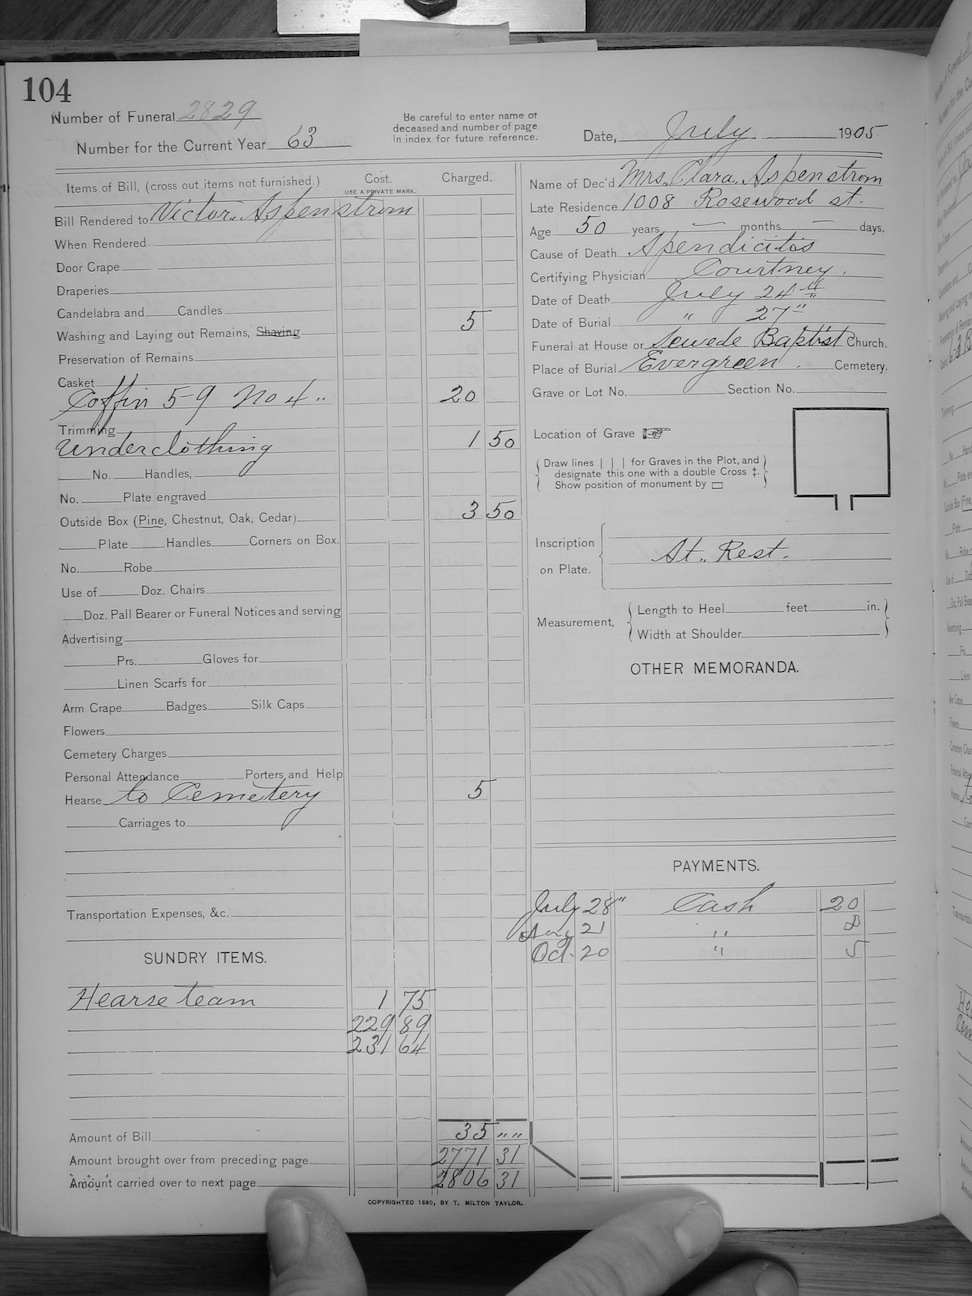 104
Number of Funeral 2829
Number for the Current Year 63
Be careful to enter name of
deceased and number of page
in index for future reference.
Date, July 1905
Items of Bill, (cross out items not furnished.) Cost. Charged.
USE A PRIVATE MARK.
Bill Rendered to Victor Aspenstrom
When Rendered
Door Crape
Draperies
Candelabra and Candles
Washing and Laying out Remains, Shaving 5
Preservation of Remains
Casket
Coffin 5-9 No 4 " 20
Trimming
Underclothing 1 50
No. Handles,
No. Plate engraved
Outside Box (Pine, Chestnut, Oak, Cedar) 3 50
Plate Handles Corners on Box.
No. Robe
Use of Doz. Chairs
Doz. Pall Bearer or Funeral Notices and serving
Advertising
Prs. Gloves for
Linen Scarfs for
Arm Crape Badges Silk Caps
Flowers
Cemetery Charges
Personal Attendance Porters and Help
Hearse to Cemetery 5
Carriages to
Transportation Expenses, &c.
SUNDRY ITEMS.
Hearse team 1 75
229 89
231 64
Amount of Bill 35 " "
Amount brought over from preceding page 2771 31
Amount carried over to next page 2806 31
Name of Dec'd Mrs. Clara. Aspenstrom
Late Residence 1008 Rosewood st.
Age 50 years — months — days.
Cause of Death Apendicitis
Certifying Physician Courtney.
Date of Death July 24th
Date of Burial " 27"
Funeral at House or Swede Baptist Church.
Place of Burial Evergreen. Cemetery.
Grave or Lot No. Section No.
Location of Grave
Draw lines | | | for Graves in the Plot, and
designate this one with a double Cross ‡.
Show position of monument by ▭
Inscription
on Plate. At. Rest.
Measurement, Length to Heel feet in.
Width at Shoulder
OTHER MEMORANDA.
PAYMENTS.
July 28" Cash 20
Aug 21 " 8
Oct. 20 " 5
COPYRIGHTED 1890, BY T. MILTON TAYLOR.